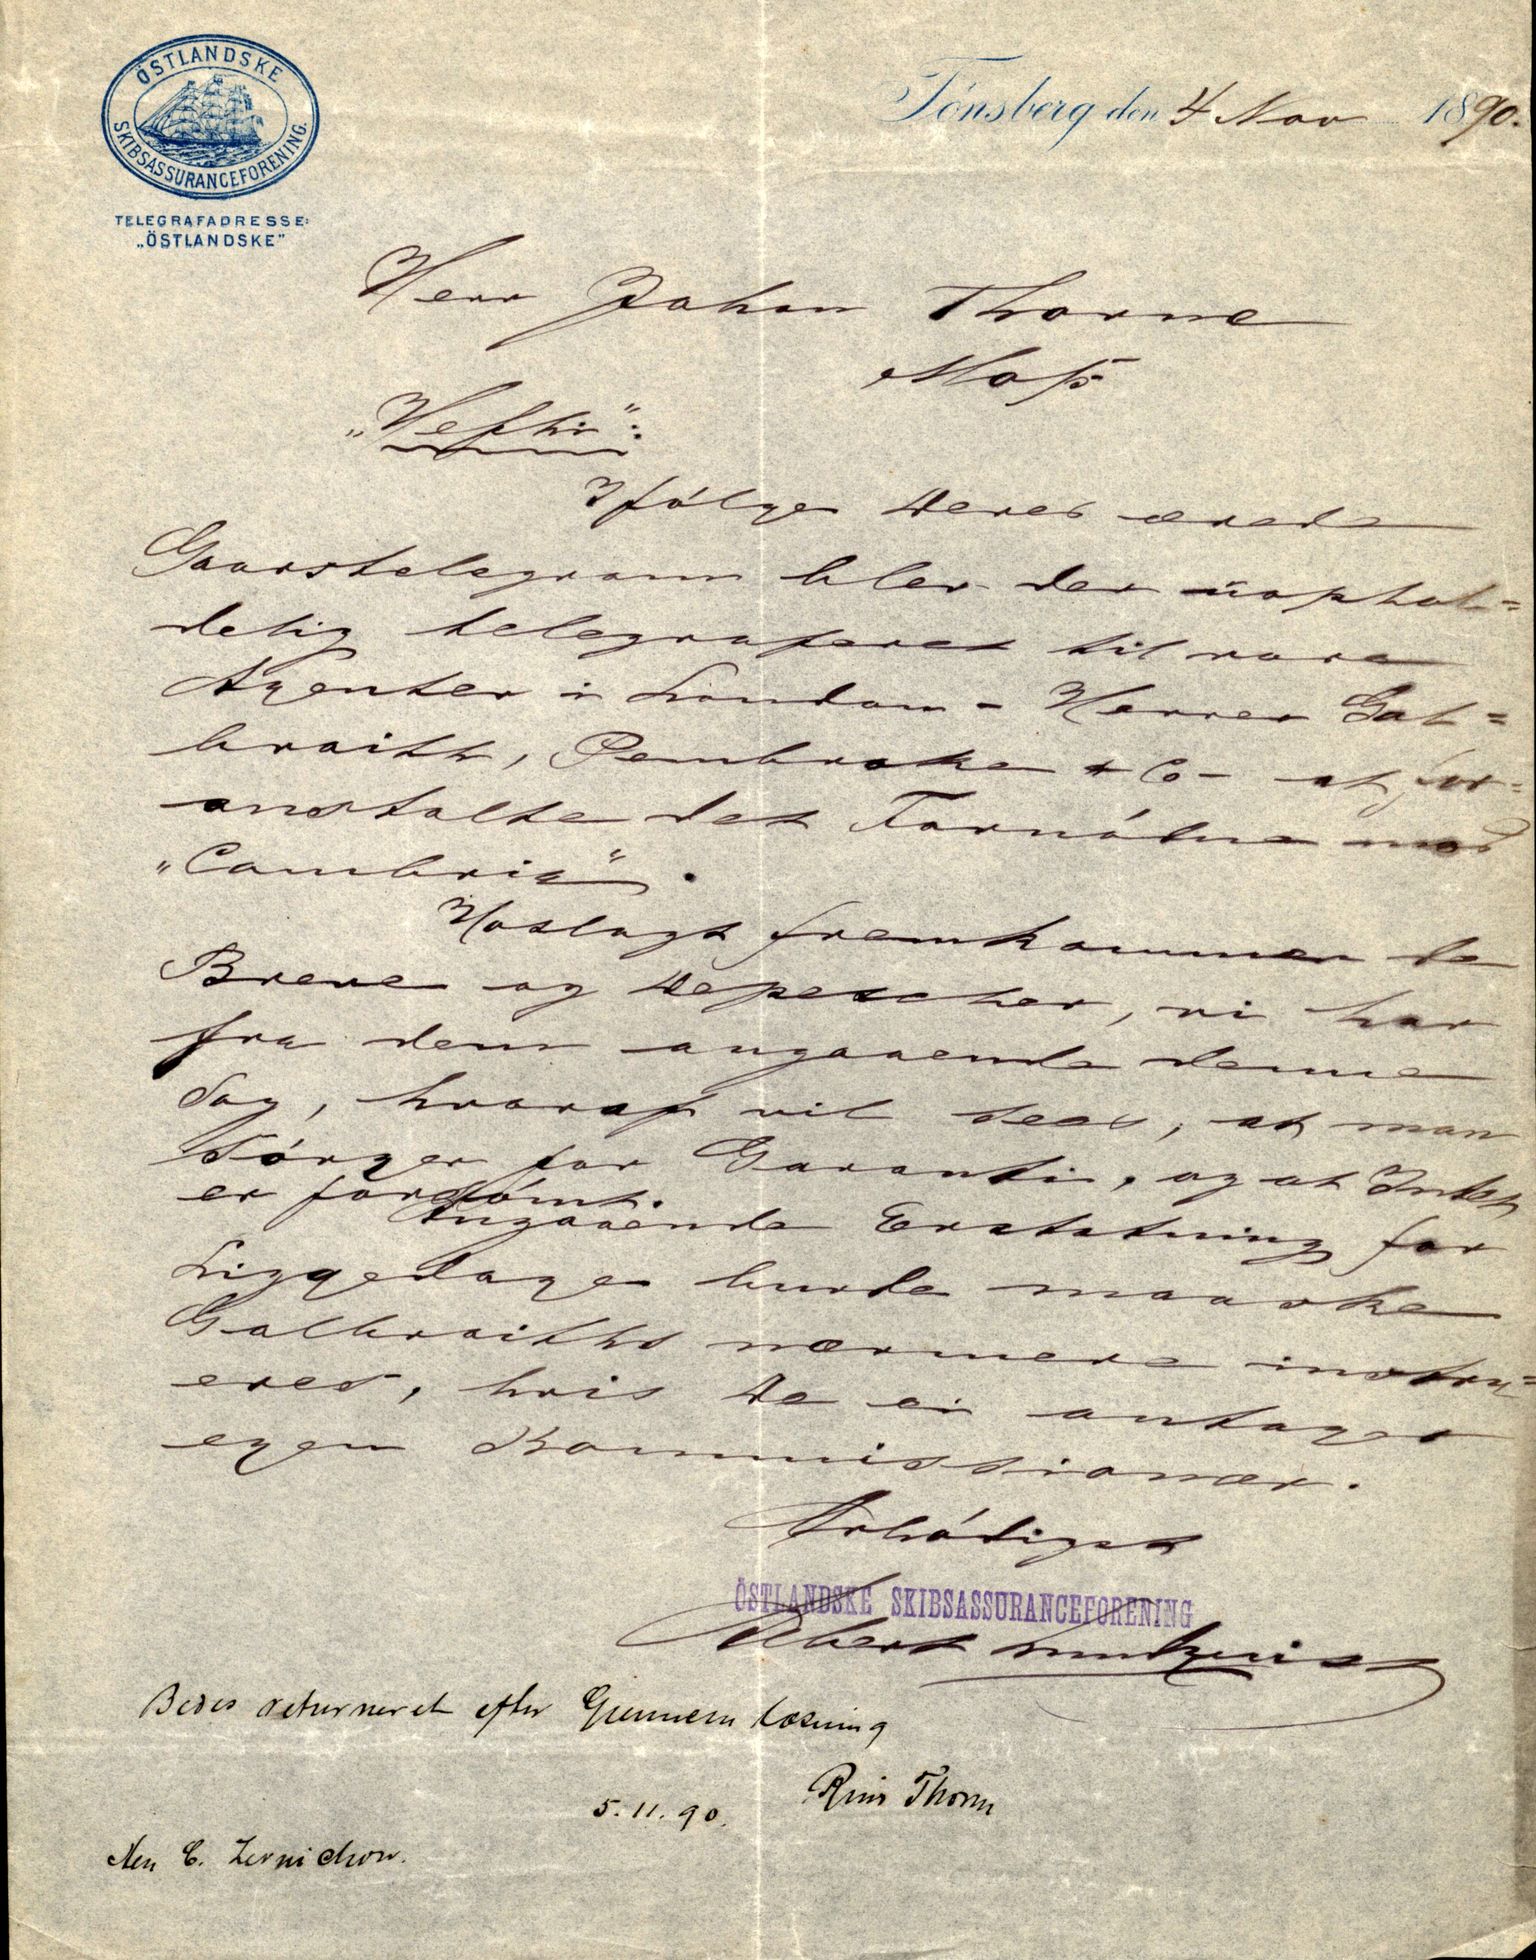 ÖSTLANDSKE
SKIBSASSURANCEFORENING.
TELEGRAFADRESSE:
„ÖSTLANDSKE”
Tönsberg den 4 Nov 1890.
Herr Johan Thorne
Moss
Ifölge Deres ærede
Gaarstelegram blev der uophol=
delig telegraferet til vore
Agenter i London - Herrer Gal=
braith, Pembroke & Co - at for=
anstalte det Fornödne mod
„Cambria”.
Hoslagt fremkommer de
Breve og Depescher, vi har
fra dem angaaende denne
Sag, hvoraf vil sees, at man
Sörger for Garanti, og at Intet
er forsömt.
Angaaende Erstatning for
Liggedage burde maaske
Galbraiths nærmere instru=
eres, hvis De ei antager
egen Kommissionær.
Ærbödigst
ÖSTLANDSKE SKIBSASSURANCEFORENING
Albert Lundqvist
Bedes returneret efter Gjennem læsning
5. 11. 90.
Thorne
C. Zernichow.